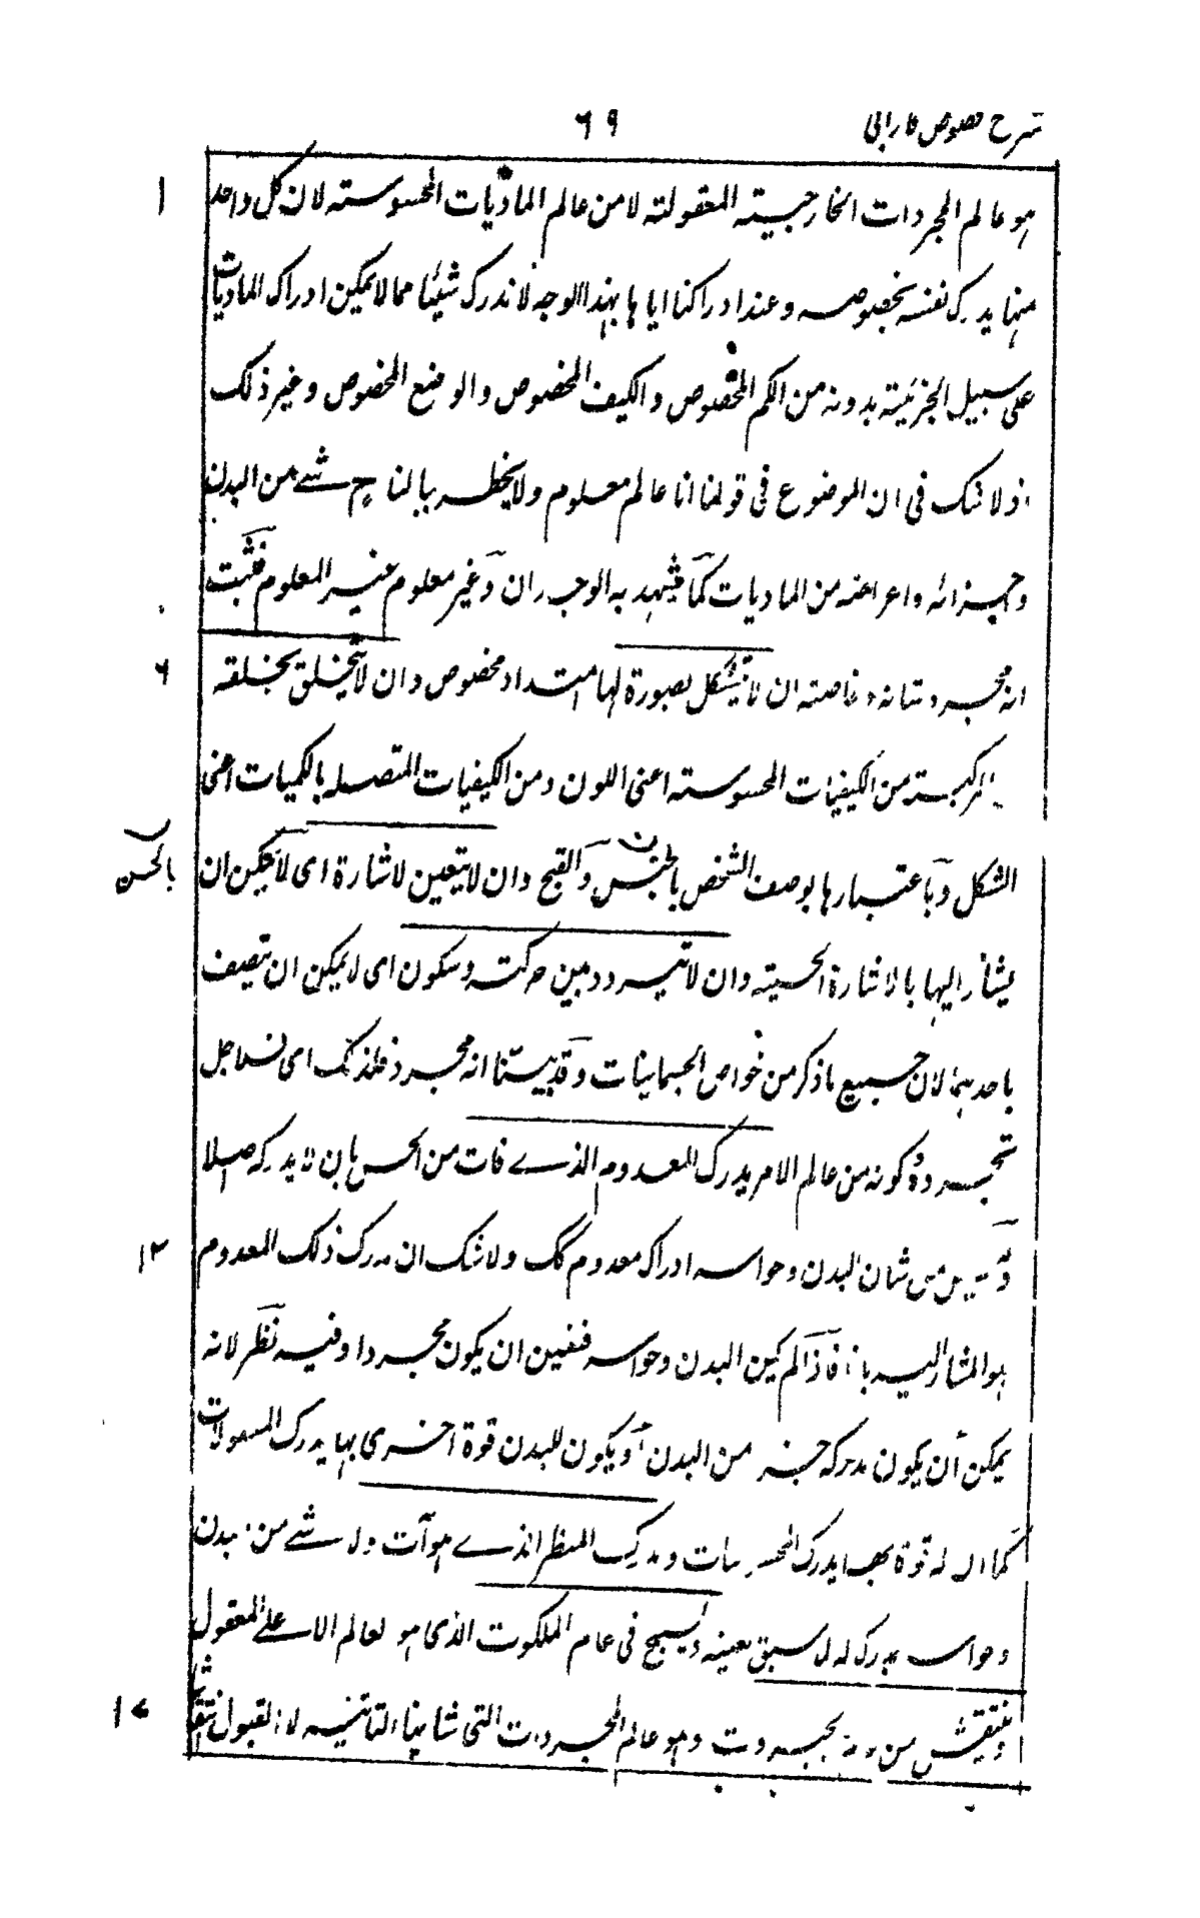 شرح فصوص فارابی ٦٩
هو عالم المجردات الخارجیته المعقولته لا من عالم المادیات المحسوسته لان کل واحد ١
منها یدرک نفسه بخصوصه و عند ادراکنا ایاها بهذا الوجه لا ندرک شیئا مما لا یمکن ادراک المادیات
علی سبیل الجزئیته بدونه من الکم المخصوص والکیف المخصوص والوضع المخصوص وغیر ذلک
اذ لا شک فی ان الموضوع فی قولنا انا عالم معلوم ولا یخطر ببالنا ح شے من البدن
و اجزائه و اعراضه من المادیات کما یشهد به الوجدان و غیر معلوم غیر المعلوم فثبت
انه مجرد و خاصته ان لا تتشکل بصورة لها امتداد مخصوص وان لا تتخلق بخلقه ٦
المرکبته من الکیفیات المحسوسته اعنی اللون ومن الکیفیات المتصله بالکمیات اعنی
الشکل و باعتبارها یوصف الشخص بالحسن والقبح وان لا یتعین لاشارة ای لا یمکن ان بالحسن
یشار الیها بالاشارة الحسیته وان لا تتردد بین حرکته وسکون ای لا یمکن ان تتصف
باحدیهما لان جمیع ما ذکر من خواص الجسمانیات و قد بینا انه مجرد فلذلک ای فلاجل
تجرده و کونه من عالم الامر یدرک المعدوم الذے فات من الحس بان لا یدرکه اصلا
و لیس من شان البدن وحواسه ادراک معدوم کک ولا شک ان مدرک ذلک المعدوم ١٢
هو المشار الیه بانا فاذا لم یکن البدن وحواسه فتعین ان یکون مجردا وفیه نظر لانه
یمکن ان یکون مدرکه جزء من البدن او یکون للبدن قوة اخری بها یدرک المعقولات
کما ان له قوة بها یدرک المحسوسات و یدرک المنتظر الذے هو آت و لا شے من البدن
وحواسه بمدرک له لما سبق بعینه و یسبح فی عالم الملکوت الذی هو العالم الاعلے المعقول
و ینتقش من خاتم الجبروت وهو عالم المجردات التی شانها التاثیر لا القبول فتنتقش ١٧